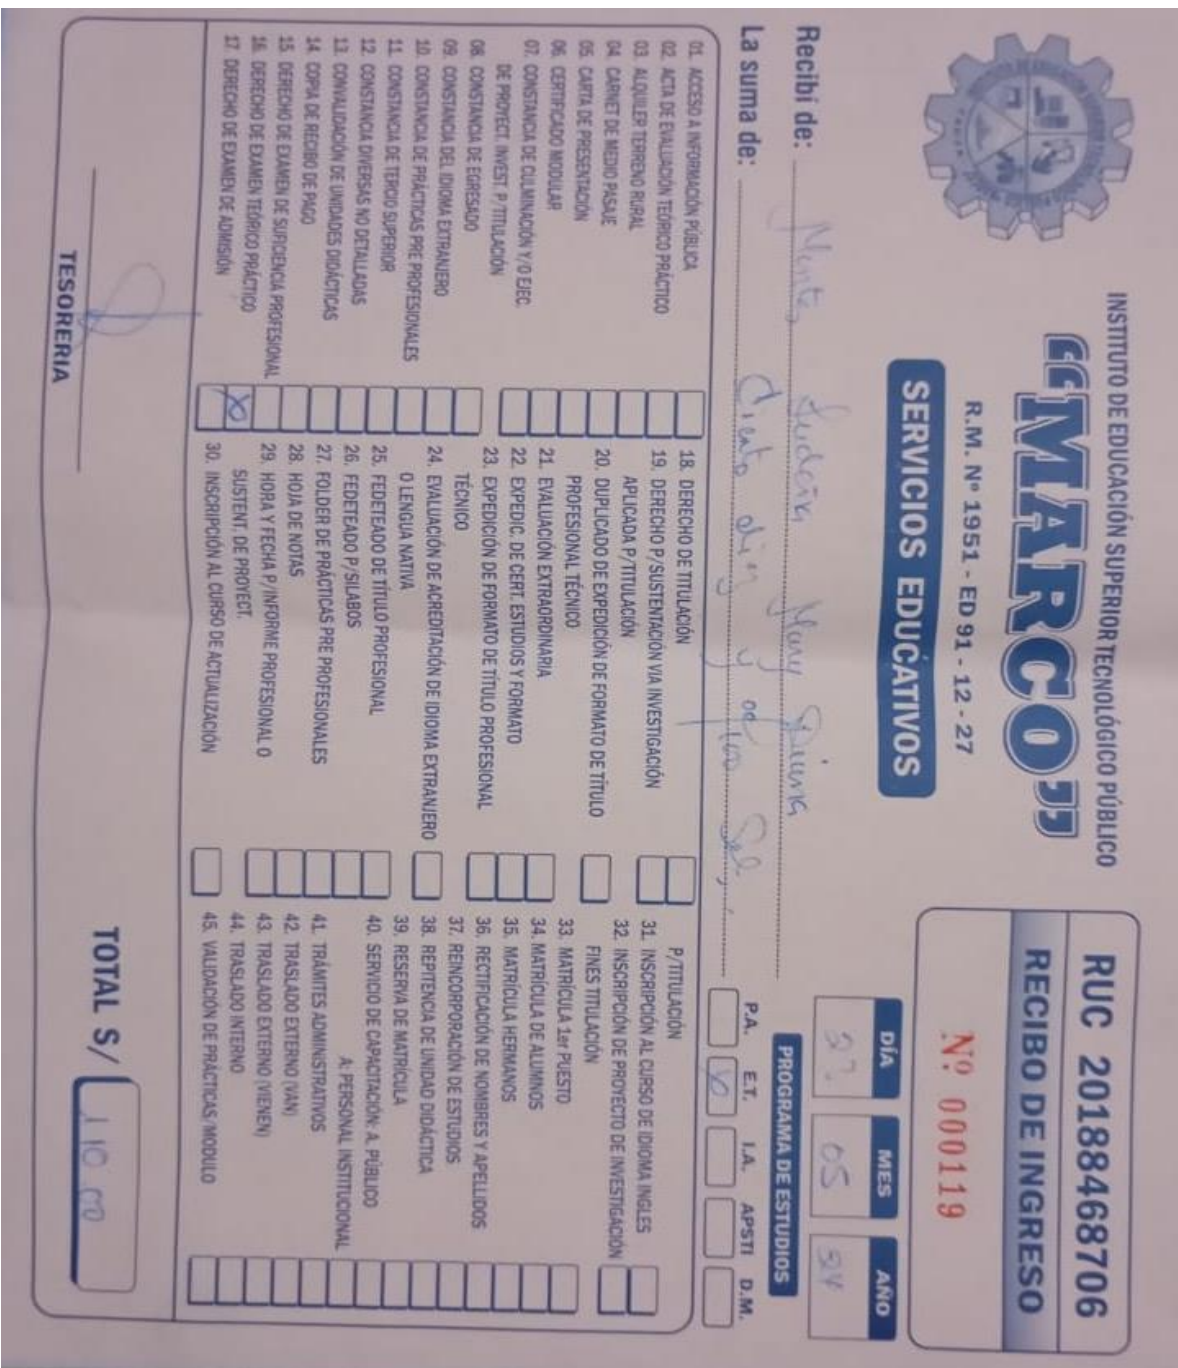 INSTITUTO DE EDUCACIÓN SUPERIOR TECNOLÓGICO PÚBLICO
“MARCO”
R.M. Nº 1951 - ED 91 - 12 - 27
SERVICIOS EDUCATIVOS
RUC 20188468706
RECIBO DE INGRESO
Nº 000119
DÍA MES AÑO
27 05 24
Recibí de: Mary Diana
La suma de: Ciento diez y 00/100 Sol
PROGRAMA DE ESTUDIOS
P.A. E.T. I.A. APSTI D.M.
01. ACCESO A INFORMACIÓN PÚBLICA
02. ACTA DE EVALUACIÓN TEÓRICO PRÁCTICO
03. ALQUILER TERRENO RURAL
04. CARNET DE MEDIO PASAJE
05. CARTA DE PRESENTACIÓN
06. CERTIFICADO MODULAR
07. CONSTANCIA DE CULMINACIÓN Y/O EJEC.
DE PROYECT. INVEST. P/TITULACIÓN
08. CONSTANCIA DE EGRESADO
09. CONSTANCIA DEL IDIOMA EXTRANJERO
10. CONSTANCIA DE PRÁCTICAS PRE PROFESIONALES
11. CONSTANCIA DE TERCIO SUPERIOR
12. CONSTANCIA DIVERSAS NO DETALLADAS
13. CONVALIDACIÓN DE UNIDADES DIDÁCTICAS
14. COPIA DE RECIBO DE PAGO
15. DERECHO DE EXAMEN DE SUFICIENCIA PROFESIONAL
16. DERECHO DE EXAMEN TEÓRICO PRÁCTICO
17. DERECHO DE EXAMEN DE ADMISIÓN
18. DERECHO DE TITULACIÓN
19. DERECHO P/SUSTENTACIÓN VIA INVESTIGACIÓN
APLICADA P/TITULACIÓN
20. DUPLICADO DE EXPEDICIÓN DE FORMATO DE TÍTULO
PROFESIONAL TÉCNICO
21. EVALUACIÓN EXTRAORDINARIA
22. EXPEDIC. DE CERT. ESTUDIOS Y FORMATO
23. EXPEDICIÓN DE FORMATO DE TÍTULO PROFESIONAL
TÉCNICO
24. EVALUACIÓN DE ACREDITACIÓN DE IDIOMA EXTRANJERO
O LENGUA NATIVA
25. FEDETEADO DE TÍTULO PROFESIONAL
26. FEDETEADO P/SILABOS
27. FOLDER DE PRÁCTICAS PRE PROFESIONALES
28. HOJA DE NOTAS
29. HORA Y FECHA P/INFORME PROFESIONAL O
SUSTENT. DE PROYECT.
30. INSCRIPCIÓN AL CURSO DE ACTUALIZACIÓN
P/TITULACIÓN
31. INSCRIPCIÓN AL CURSO DE IDIOMA INGLES
32. INSCRIPCIÓN DE PROYECTO DE INVESTIGACIÓN
FINES TITULACIÓN
33. MATRÍCULA 1er PUESTO
34. MATRÍCULA DE ALUMNOS
35. MATRÍCULA HERMANOS
36. RECTIFICACIÓN DE NOMBRES Y APELLIDOS
37. REINCORPORACIÓN DE ESTUDIOS
38. REPITENCIA DE UNIDAD DIDÁCTICA
39. RESERVA DE MATRÍCULA
40. SERVICIO DE CAPACITACIÓN: A. PÚBLICO
A: PERSONAL INSTITUCIONAL
41. TRÁMITES ADMINISTRATIVOS
42. TRASLADO EXTERNO (VAN)
43. TRASLADO EXTERNO (VIENEN)
44. TRASLADO INTERNO
45. VALIDACIÓN DE PRÁCTICAS/MODULO
TESORERIA
TOTAL S/ 110.00